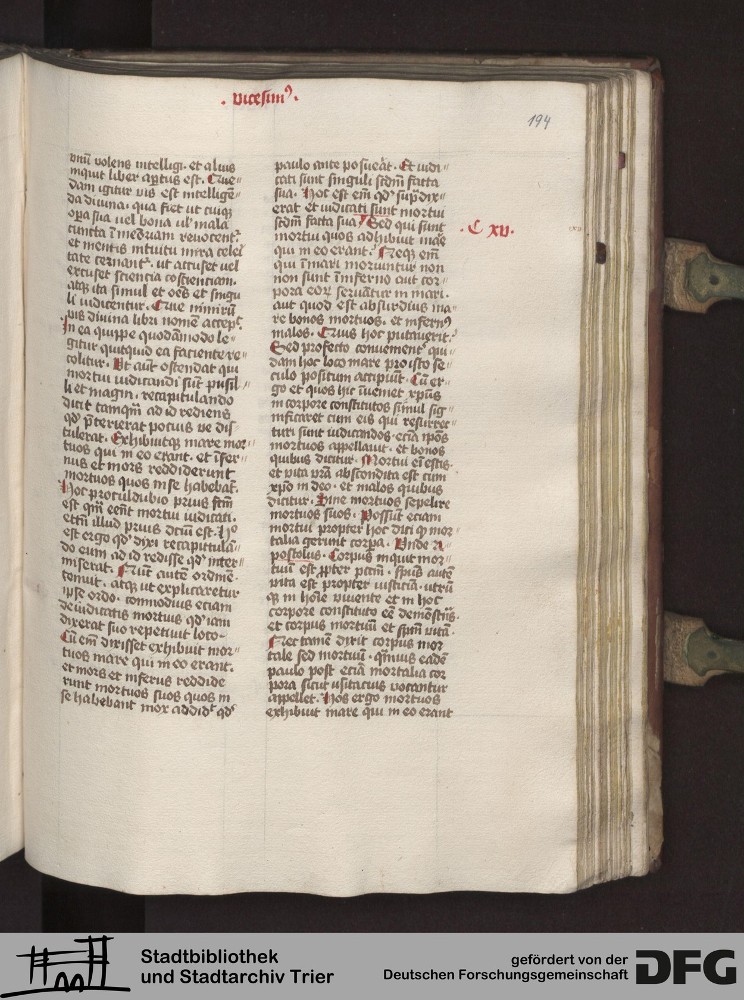 . vicesimꝰ .
194
vnū volens intelligi. et alius
inquit liber aꝑtus est. Que-
dam igitur vis est intelligē-
da diuina. qua fiet ut cuiqꝫ
oꝑa sua uel bona ul' mala
cuncta ī memoriam reuocent
et mentis intuitu mira celeri
tate cernant. ut accuset uel
excuset sciencia conscienciam.
atqꝫ ita simul et oēs et singu
li iudicentur. Que nimirū
vis diuina libri nomē accepit.
In ea quippe quodāmodo le-
gitur quitquid ea faciente re-
colitur. Ut aūt ostendat qui
mortui iudicandi sint pusil-
li et magni. recapitulando
dicit tamqm̄ ad id rediens
qd' p̄terierat potius ue dis-
tulerat. Exhibuitqꝫ mare mor-
tuos qui in eo erant. et īfer-
nus et mors reddiderunt
mortuos quos in se habebāt.
Hoc procul dubio prius fc̄m
est qm̄ eēnt mortui iudicati.
est ergo qd' dixi recapitulā-
do eum ad id redisse qd' inter-
miserat. Nūc autē ordinē
tenuit. atqꝫ ut explicaretur
ipse ordo. commodius eciam
de iudicatis mortuis qd' iam
dixerat suo repetiuit loco.
Cū em̄ dixisset exhibuit mor-
tuos mare qui in eo erant.
et mors et inferus reddide
runt mortuos suos quos in
se habebant mox addidit qd'
paulo ante posuerat. Et iudi-
cati sunt singuli scdm̄ facta
sua. Hoc est em̄ qd' supͣ dix-
erat et iudicati sunt mortui
scdm̄ facta sua. Sed qui sunt
. C xv.
mortui quos adhibuit mare
qui in eo erant. Neqꝫ em̄
qui ī mari moriuntur non
non sunt ī inferno aut cor-
pora eoꝝ seruātur in mari.
aut quod est absurdius ma-
re bonos mortuos. et infernꝰ
malos. Quis hoc putauerit.
Sed profecto conuement' qui-
dam hoc loco mare pro isto se-
culo positum accipiūt. Cū er-
go et quos hic īuemet xp̄us
in corpore constitutos simul sig-
nificaret cum eis qui resurrec-
turi sunt iudicandos. eciā ip̄os
mortuos appellauit. et bonos
quibus dicitur. Mortui em̄ estis.
et vita vr̄a abscondita est cum
xp̄o in deo. et malos quibus
dicitur. Sine mortuos sepelire
mortuos suos. Possūt eciam
mortui propter hoc dici qꝫ mor-
talia gerunt corpa. Unde a-
postolus. Corpus inquit mor-
tuū est ꝓpter pctm̄. spūs autē
vita est propter iusticiā. utrū
qꝫ in hoīe viuente et in hoc
corpore constituto eē demonstrās.
et corpus mortuū et spm̄ vitā.
Nec tamē dixit corpus mor
tale sed mortuū. qm̄uis eadē
paulo post eciā mortalia cor
pora sicut usitacius vocantur
appellet. Hos ergo mortuos
exhibuit mare qui in eo erant
Stadtbibliothek
und Stadtarchiv Trier
gefördert von der
Deutschen Forschungsgemeinschaft
DFG